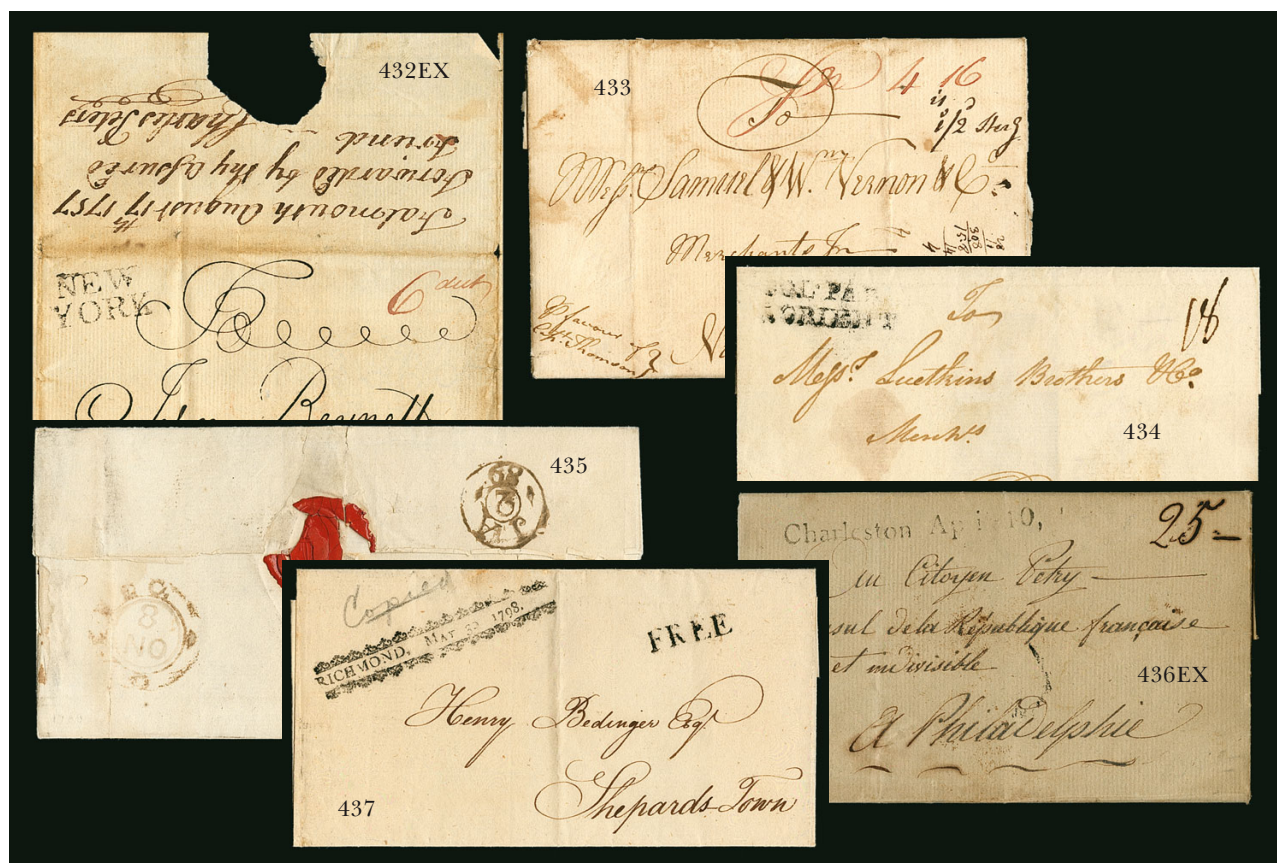 432EX
Falmouth August 17th 1757
Forwarded by thy assured
Friend
Charles Peters
NEW
YORK
6 dwt
To
433
To
4 16
is
1/2 Sterg
Messrs. Samuel & Wm. Vernon & Co.
Merchants In
P favour of
Capt. Thomson
434
L'ORIENT
To
18
Messrs. Luetkins Brothers & Co.
Merchts
435
2
8
NO
436EX
Charleston April 10,
25
Au Citoyen Petry
de la République française
et indivisible
A Philadelphie
437
Copied
RICHMOND, Mar. 1798.
FREE
Henry Bedinger Esqr.
Shepards Town